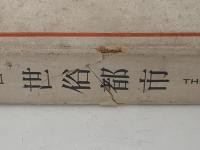 世俗都市 TH